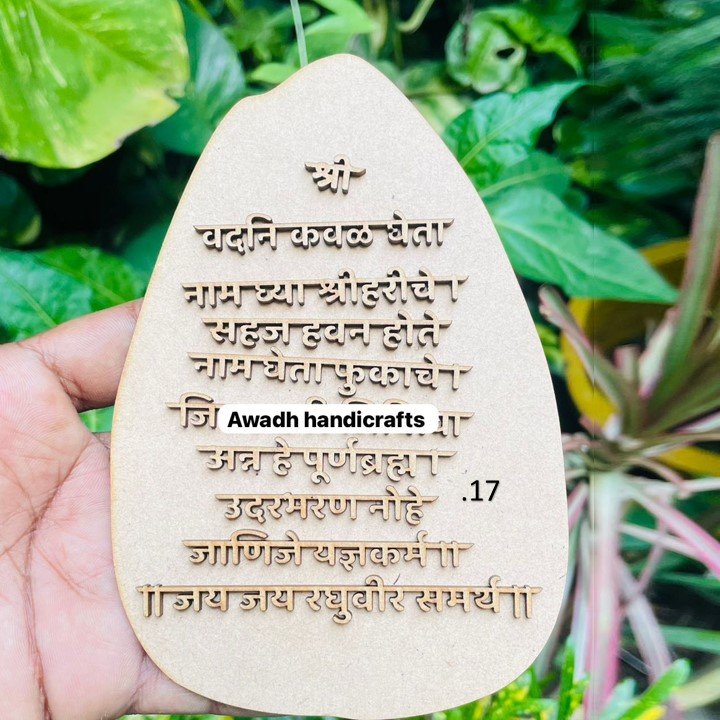 श्री
वदनि कवळ घेता
नाम घ्या श्रीहरीचे ।
सहज हवन होते
नाम घेता फुकाचे ।
Awadh handicrafts
अन्न हे पूर्णब्रह्म ।
उदरभरण नोहे
.17
जाणिजे यज्ञकर्म ॥
॥ जय जय रघुवीर समर्थ ॥